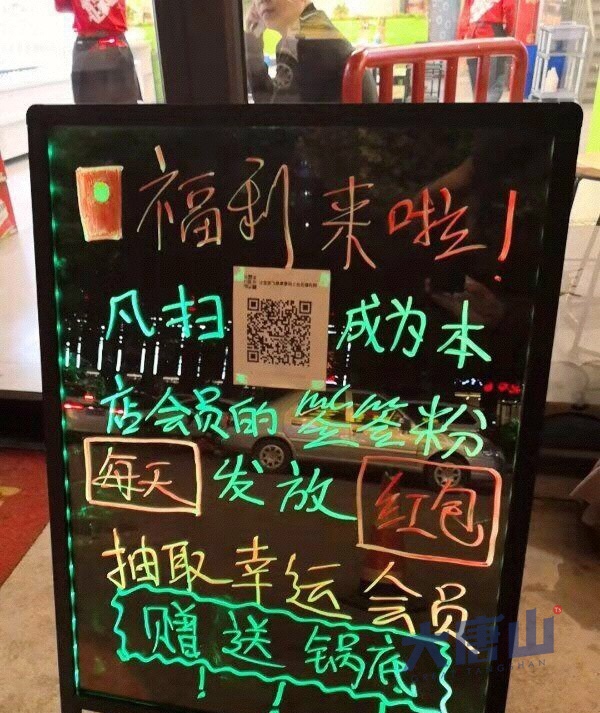 福利来啦！
凡扫 成为本
店会员的签签粉
每天发放红包
抽取幸运会员
赠送锅底
！！！
大唐山